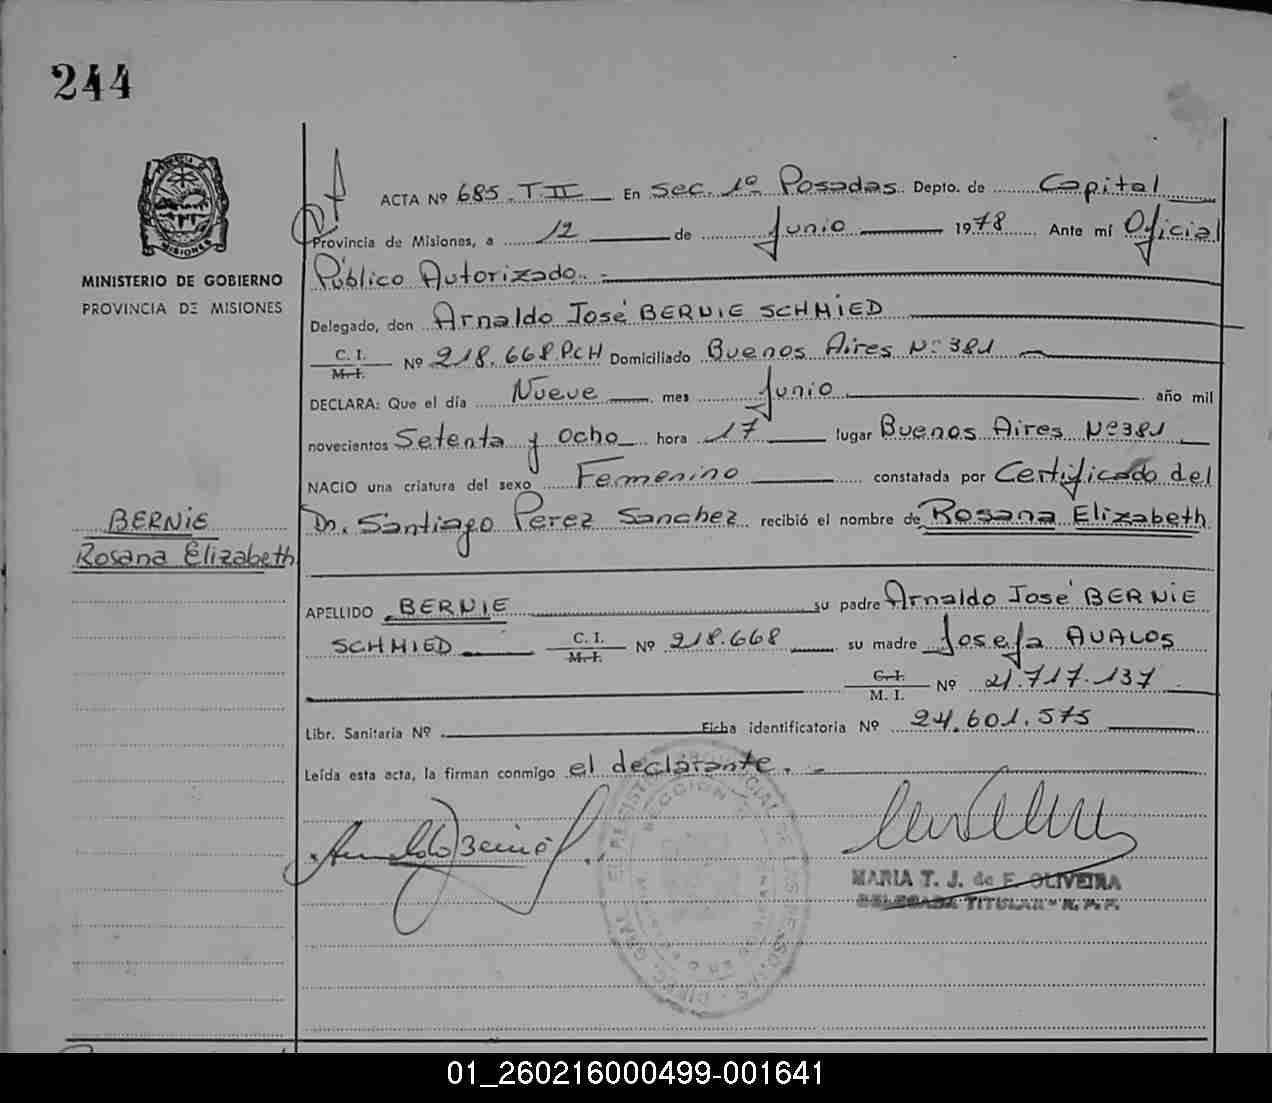 244
MINISTERIO DE GOBIERNO
PROVINCIA DE MISIONES
ACTA Nº 685. T. II En Sec. 1º Posadas. Depto. de Capital
Provincia de Misiones, a 12 de Junio 1978 Ante mí Oficial
Público Autorizado. -
Delegado, don Arnaldo José BERNIE SCHMIED
C. I.
M. I. Nº 218.668 PcH Domiciliado Buenos Aires Nº 381
DECLARA: Que el día Nueve mes Junio año mil
novecientos Setenta y Ocho hora 17 lugar Buenos Aires Nº 381
NACIO una criatura del sexo Femenino constatada por Certificado del
Dr. Santiago Perez Sanchez recibió el nombre de Rosana Elizabeth
BERNIE
Rosana Elizabeth
APELLIDO BERNIE su padre Arnaldo José BERNIE
SCHMIED C. I.
M. I. Nº 218.668 su madre Josefa AVALOS
C. I.
M. I. Nº 21.717.137
Libr. Sanitaria Nº Ficha identificatoria Nº 24.601.575
Leída esta acta, la firman conmigo el declarante. -
MARIA T. J. de F. OLIVEIRA
DELEGADA TITULAR - R. P. P.
01_260216000499-001641